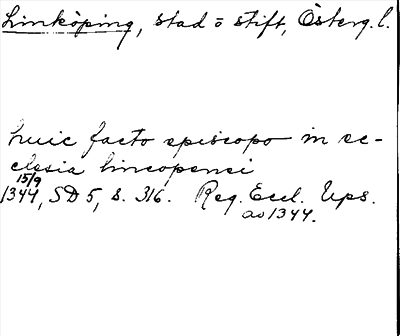 Linköping, stad o stift, Österg. l.
huic facto episcopo in ec-
clesia lincopensi
15/9
1344, SD 5, s. 316. Reg. Eccl. Ups.
ao 1344.